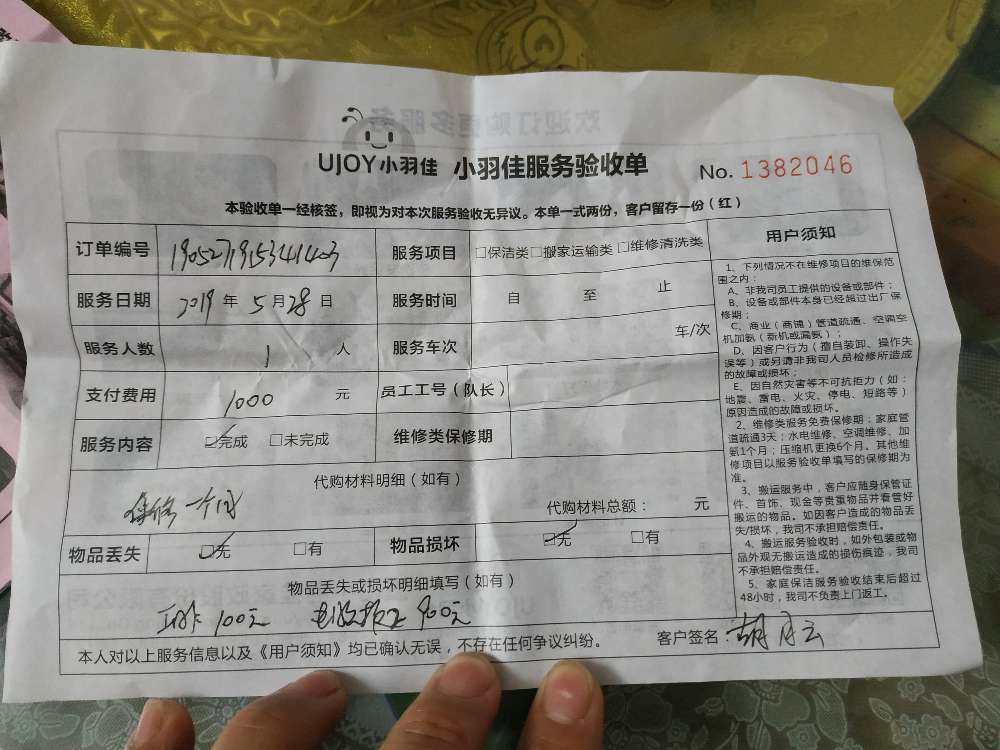 UJOY小羽佳 小羽佳服务验收单 No. 1382046
本验收单一经核签，即视为对本次服务验收无异议。本单一式两份，客户留存一份（红）
订单编号 190527195341403 服务项目 □保洁类□搬家运输类□维修清洗类
服务日期 2019年5月28日 服务时间 自 至 止
服务人数 1 人 服务车次 车/次
支付费用 1000 元 员工工号（队长）
服务内容 ☑完成 □未完成 维修类保修期
代购材料明细（如有）
保修一个月 代购材料总额： 元
物品丢失 ☑无 □有 物品损坏 ☑无 □有
物品丢失或损坏明细填写（如有）
100元 900元
本人对以上服务信息以及《用户须知》均已确认无误，不存在任何争议纠纷。 客户签名：胡月云
用户须知
1、下列情况不在维修项目的维保范
围之内：
A、非我司员工提供的设备或部件；
B、设备或部件本身已经超过出厂保
修期；
C、商业（商铺）管道疏通、空调空
机加氨（新机或漏氨）；
D、因客户行为（擅自装卸、操作失
误等）或另请非我司人员检修所造成
的故障或损坏；
E、因自然灾害等不可抗拒力（如：
地震、雷电、火灾、停电、短路等）
原因造成的故障或损坏。
2、维修类服务免费保修期：家庭管
道疏通3天；水电维修、空调维修、加
氨1个月；压缩机更换6个月。其他维
修项目以服务验收单填写的保修期为
准。
3、搬运服务中，客户应随身保管证
件、首饰、现金等贵重物品并看管好
搬运的物品。如因客户造成的物品丢
失/损坏，我司不承担赔偿责任。
4、搬运服务验收时，如外包装或物
品外观无搬运造成的损伤痕迹，我司
不承担赔偿责任。
5、家庭保洁服务验收结束后超过
48小时，我司不负责上门返工。